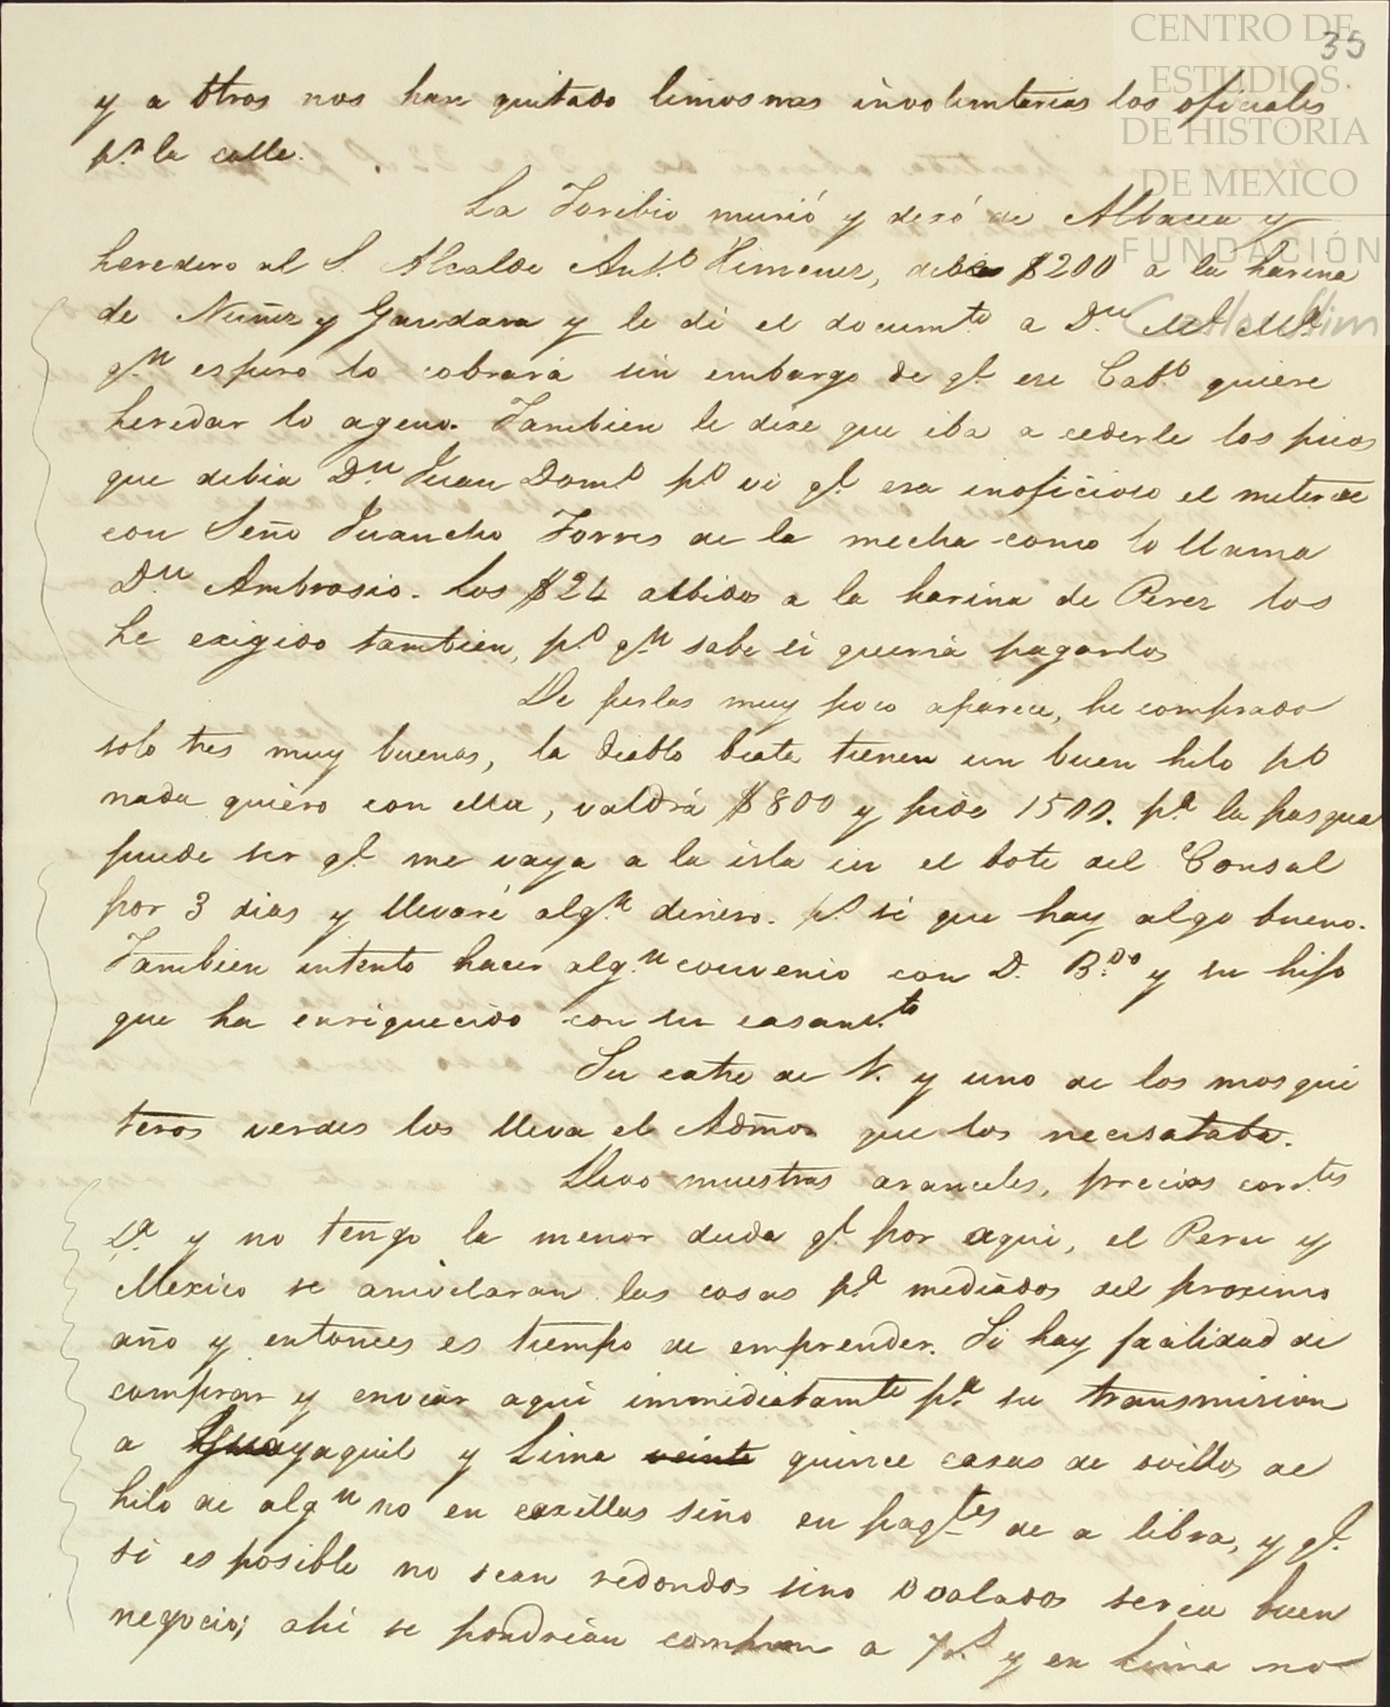 CENTRO DE
ESTUDIOS
DE HISTORIA
DE MEXICO
FUNDACIÓN
Carlos Slim
35
y a otros nos han quitado limosnas involuntarias los oficiales
p.r la calle.
La Toribio murió y dexó de Albacea y
heredero al S. Alcalde Ant.o Ximenez, debe $200 a la harina
de Nuñez y Gandara y le di el docum.to a D.n
q.n espero lo cobrará sin embargo de q.e ese Cab.o quiere
heredar lo ageno. Tambien le dixe que iba a cederle los picos
que debia D.n Juan Dom.o p.o vi q.e era inoficioso el meterse
con Seño Juancho Torres de la mecha como lo llama
D.n Ambrosio. Los $24 a la harina de Perez los
he exigido tambien, p.o q.n sabe si querrá pagarlos
De perlas muy poco aparece, he comprado
solo tres muy buenas, la diablo beata tienen un buen hilo p.o
nada quiero con ella, valdrá $800 y pide 1500. p.a la pasqua
puede ser q.e me vaya a la isla en el bote del Consul
por 3 dias y llevaré alg.n dinero. p.o sé que hay algo bueno.
Tambien intento hacer alg.n convenio con D. B.do y su hijo
que ha enriquecido con su casam.to
Su catre de V. y uno de los mosqui
teros verdes los lleva el Admor que los necesitaba.
Llevo muestras aranceles, precios corr.tes
&.a y no tengo la menor duda q.e por aqui, el Peru y
Mexico se anivelaran las cosas p.a mediados del proximo
año y entonces es tiempo de emprender. Si hay facilidad de
comprar y enviar aqui immediatam.te p.a su transmision
a Guayaquil y Lima veinte quince caxas de ovillos de
hilo de alg.n no en caxillas sino en paq.tes de a libra, y q.e
si es posible no sean redondos sino ovalados seria buen
negocio; ahi se pondrian a 7 r.s y en Lima no